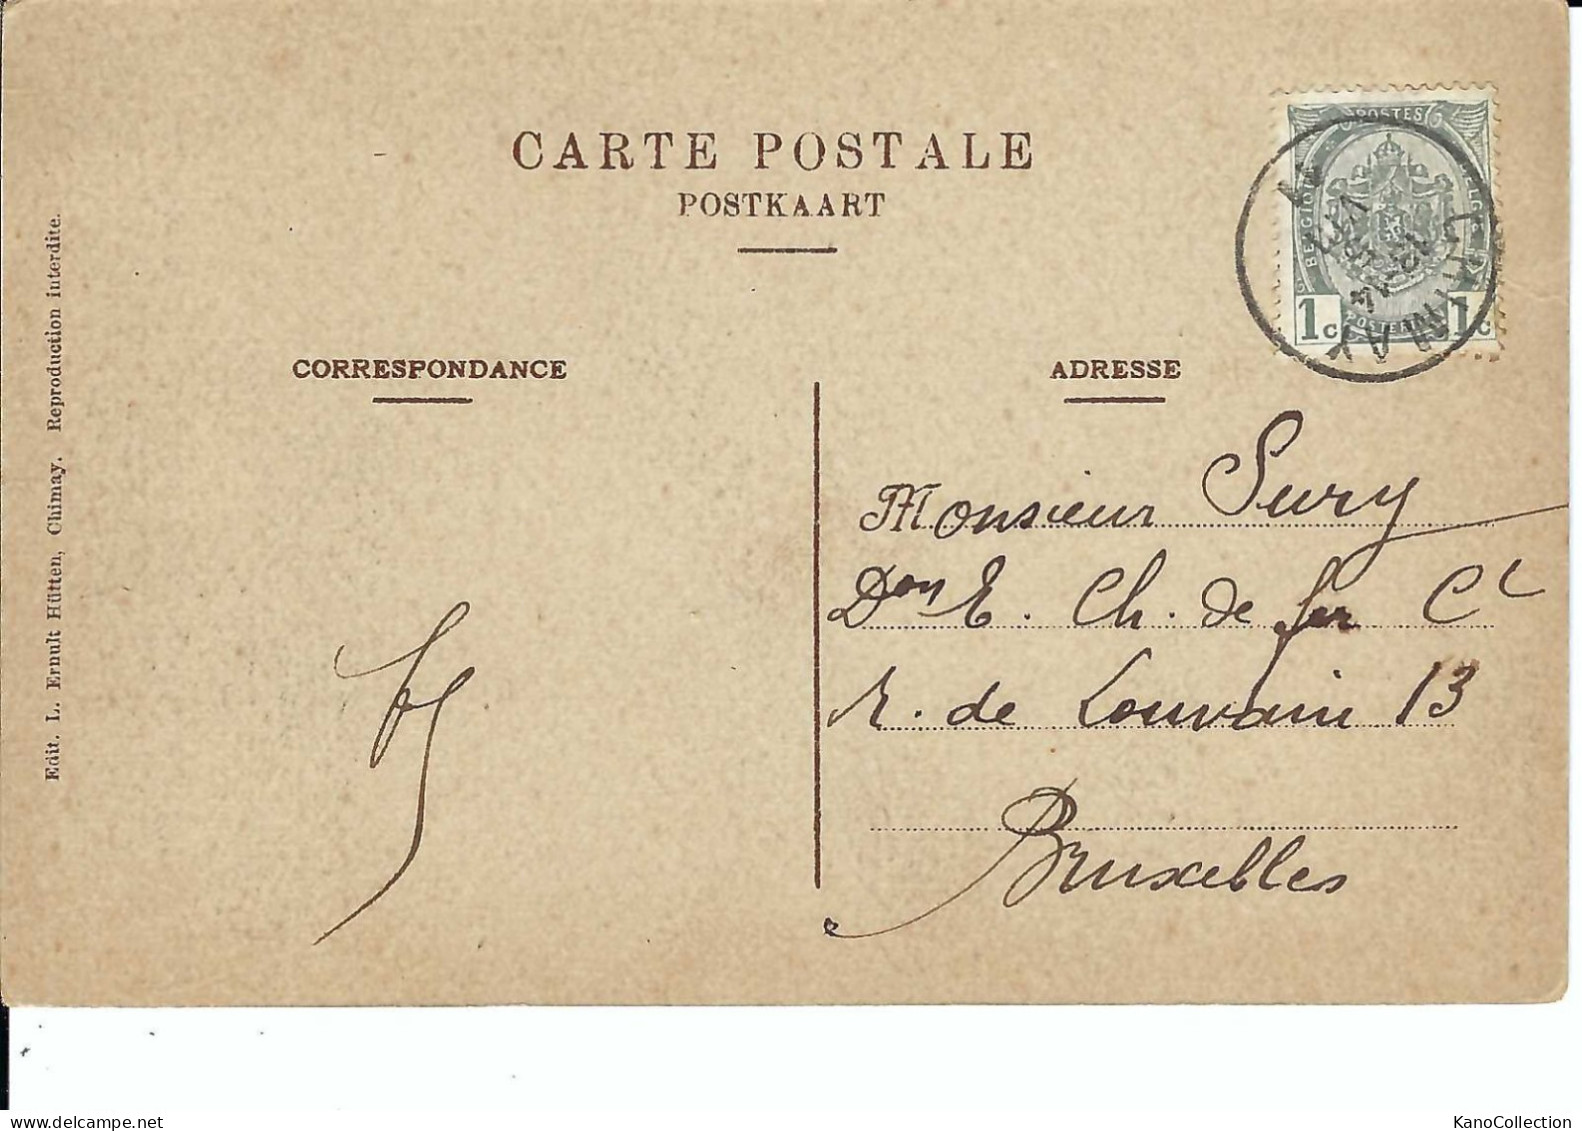 CARTE POSTALE
POSTKAART
CORRESPONDANCE
ADRESSE
POSTES
BELGIQUE
1c 1c
CHIMAY
Monsieur Sury
Don E. Ch. de fer Ct
R. de Louvain 13
Bruxelles
Edit. L. Ernult Hütten, Chimay. Reproduction interdite.
delcampe.net
KanoCollection